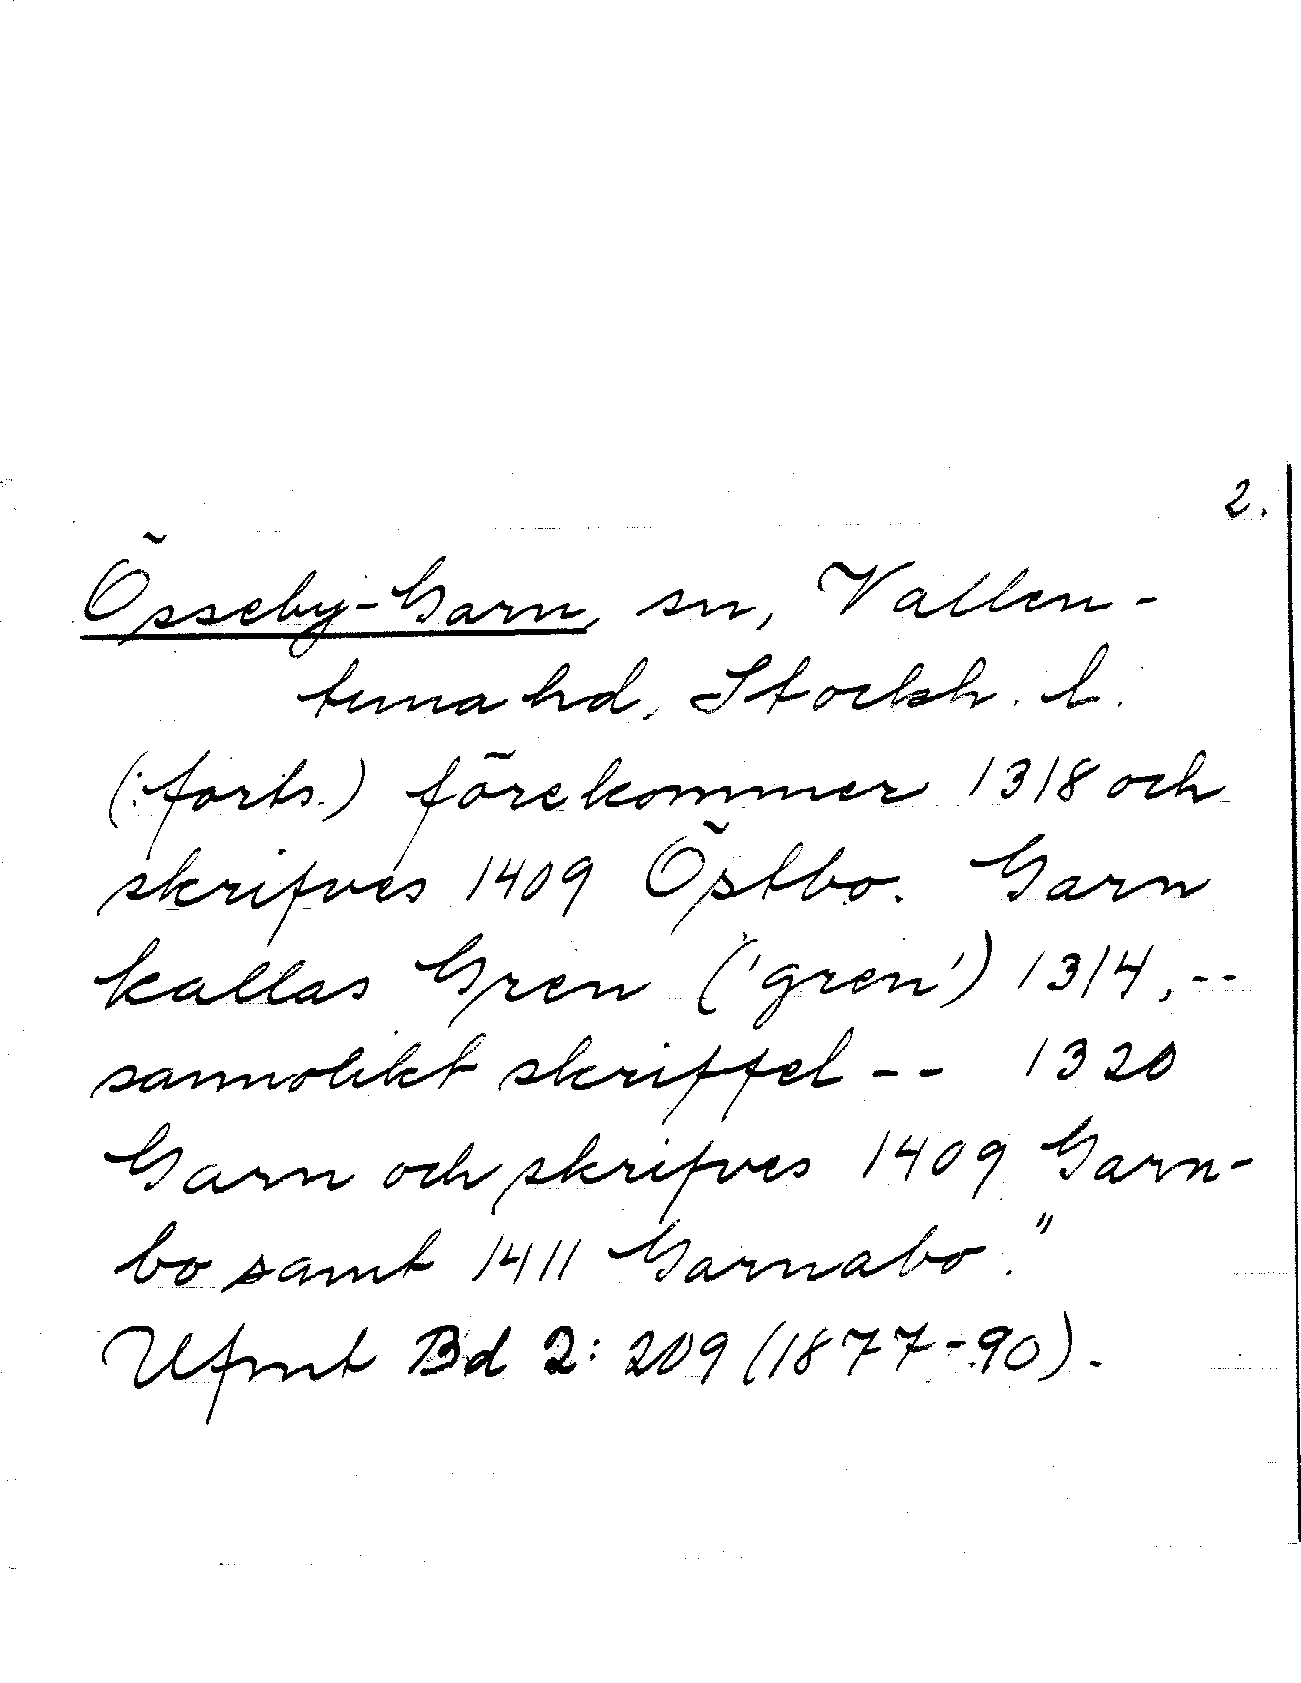 2.
Össeby-Garn, sn, Vallen-
tuna hd, Stockh. l.
(forts.) förekommer 1318 och
skrifves 1409 Östbo. Garn
kallas Gren ('gren') 1314, --
sannolikt skriffel -- 1320
Garn och skrifves 1409 Garn-
bo samt 1411 Garnabo."
Ufmt Bd 2: 209 (1877-90).